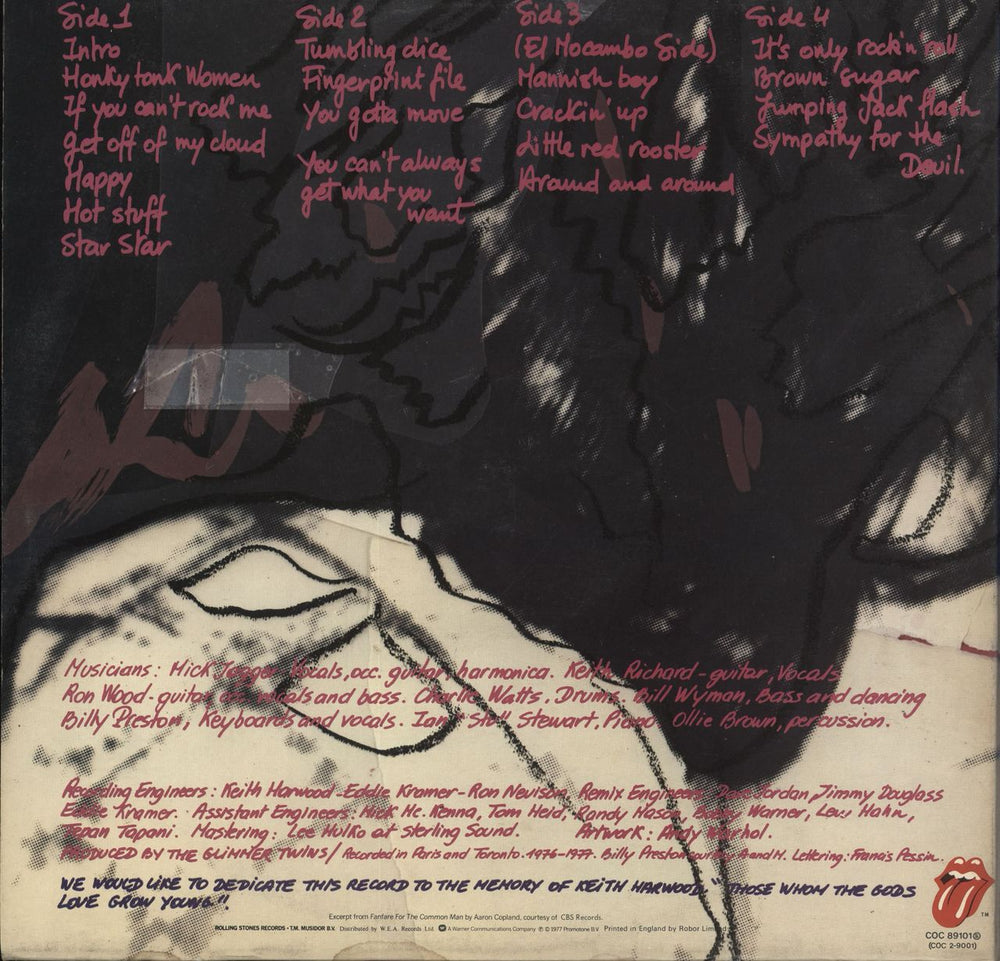 Side 1
Intro
Honky tonk Women
If you can't rock me
get off of my cloud
Happy
Hot stuff
Star Star
Side 2
Tumbling dice
Fingerprint file
You gotta move
You can't always
get what you
want
Side 3
(El Mocambo Side)
Mannish boy
Crackin' up
Little red rooster
Around and around
Side 4
It's only rock'n roll
Brown sugar
Jumping Jack flash
Sympathy for the
Devil.
Musicians: Mick Jagger Vocals, acc. guitar, harmonica. Keith Richard - guitar, Vocals
Ron Wood - guitar vocals and bass. Charlie Watts. Drums, Bill Wyman, Bass and dancing
Billy Preston, Keyboards and vocals. Ian Stewart, Piano Ollie Brown, percussion.
Recording Engineers: Keith Harwood - Eddie Kramer - Ron Nevison, Remix Engineers Dave Jordan, Jimmy Douglass
Eddie Kramer. Assistant Engineers: Mick Mc. Kenna, Tom Heid, Randy Mason, Bobby Warner, Lew Hahn,
Tapani. Mastering: Lee Hulko at Sterling Sound. Artwork: Andy Warhol.
PRODUCED BY THE GLIMMER TWINS / Recorded in Paris and Toronto - 1976-1977. Billy Preston courtesy A and M. Lettering: Francis Pessin.
WE WOULD LIKE TO DEDICATE THIS RECORD TO THE MEMORY OF KEITH HARWOOD. "THOSE WHOM THE GODS
LOVE GROW YOUNG".
Excerpt from Fanfare For The Common Man by Aaron Copland, courtesy of CBS Records.
ROLLING STONES RECORDS - T.M. MUSIDOR B.V. Distributed by W.E.A. Records Ltd. A Warner Communications Company ℗ © 1977 Promotone B.V. Printed in England by Robor Limited
TM
COC 89101Ⓢ
(COC 2-9001)